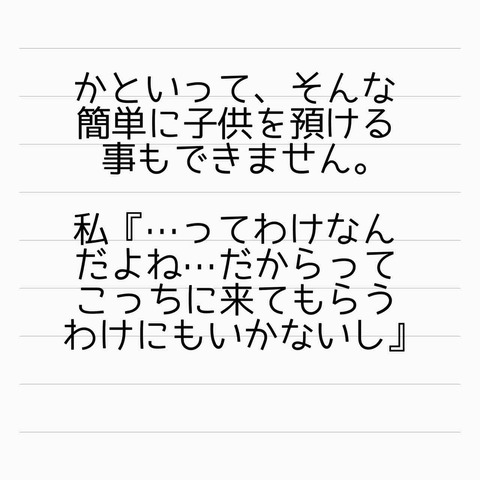 かといって、そんな
簡単に子供を預ける
事もできません。
私『…ってわけなん
だよね…だからって
こっちに来てもらう
わけにもいかないし』